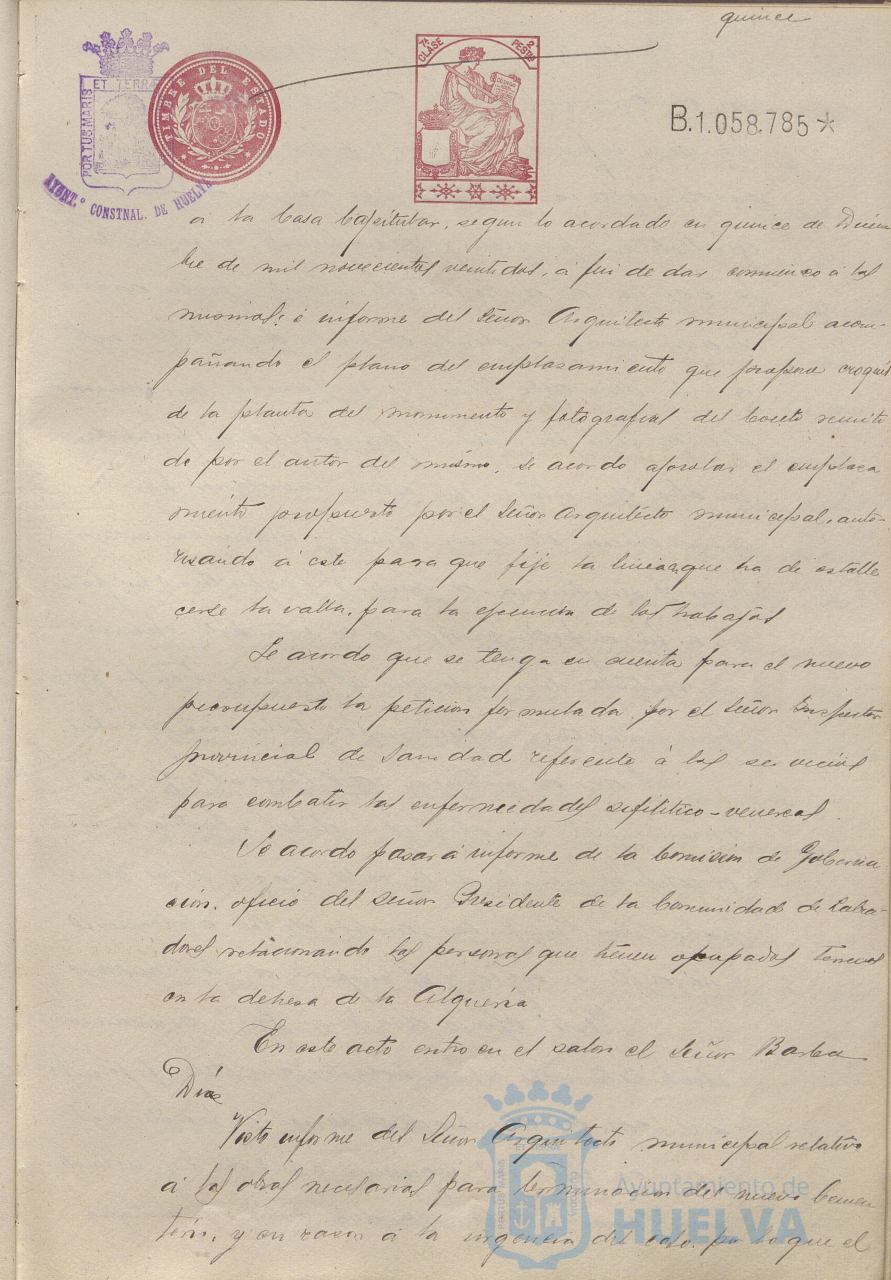 quince
ET TERRÆ
PORTUS MARIS
AYUNT.º CONSTNAL. DE HUELVA
TIMBRE DEL ESTADO
7ª CLASE
2 PESTS
B.1.058.785*
á la Casa Capitular, segun lo acordado en quince de Diciem
bre de mil novecientos veintidos, á fin de dar comienzo á las
mismas; é informe del Señor Arquitecto municipal acom-
pañando el plano del emplazamiento que propone croquis
de la planta del monumento y fotografias del boceto remiti
do por el autor del mismo, se acordo aprobar el emplaza
miento propuesto por el Señor Arquitecto municipal, auto-
rizando á este para que fije la linea que ha de estable
cerse la valla, para la ejecucion de los trabajos
Se acordo que se tenga en cuenta para el nuevo
presupuesto la peticion formulada por el Señor Inspector
provincial de Sanidad referente á los servicios
para combatir las enfermedades sifilitico-venereas.
Se acordo pasar á informe de la Comision de Goberna
ción, oficio del señor Presidente de la Comunidad de Labra-
dores relacionando las personas que tienen ocupados terrenos
en la dehesa de la Alqueria
En este acto entro en el salon el Señor Barba
Diaz
Visto informe del Señor Arquitecto municipal relativo
á las obras necesarias para terminacion del nuevo Cemen
terio, y en razon á la urgencia del caso, por lo que el
PORTUS MARIS
CUSTODIA
Ayuntamiento de
HUELVA